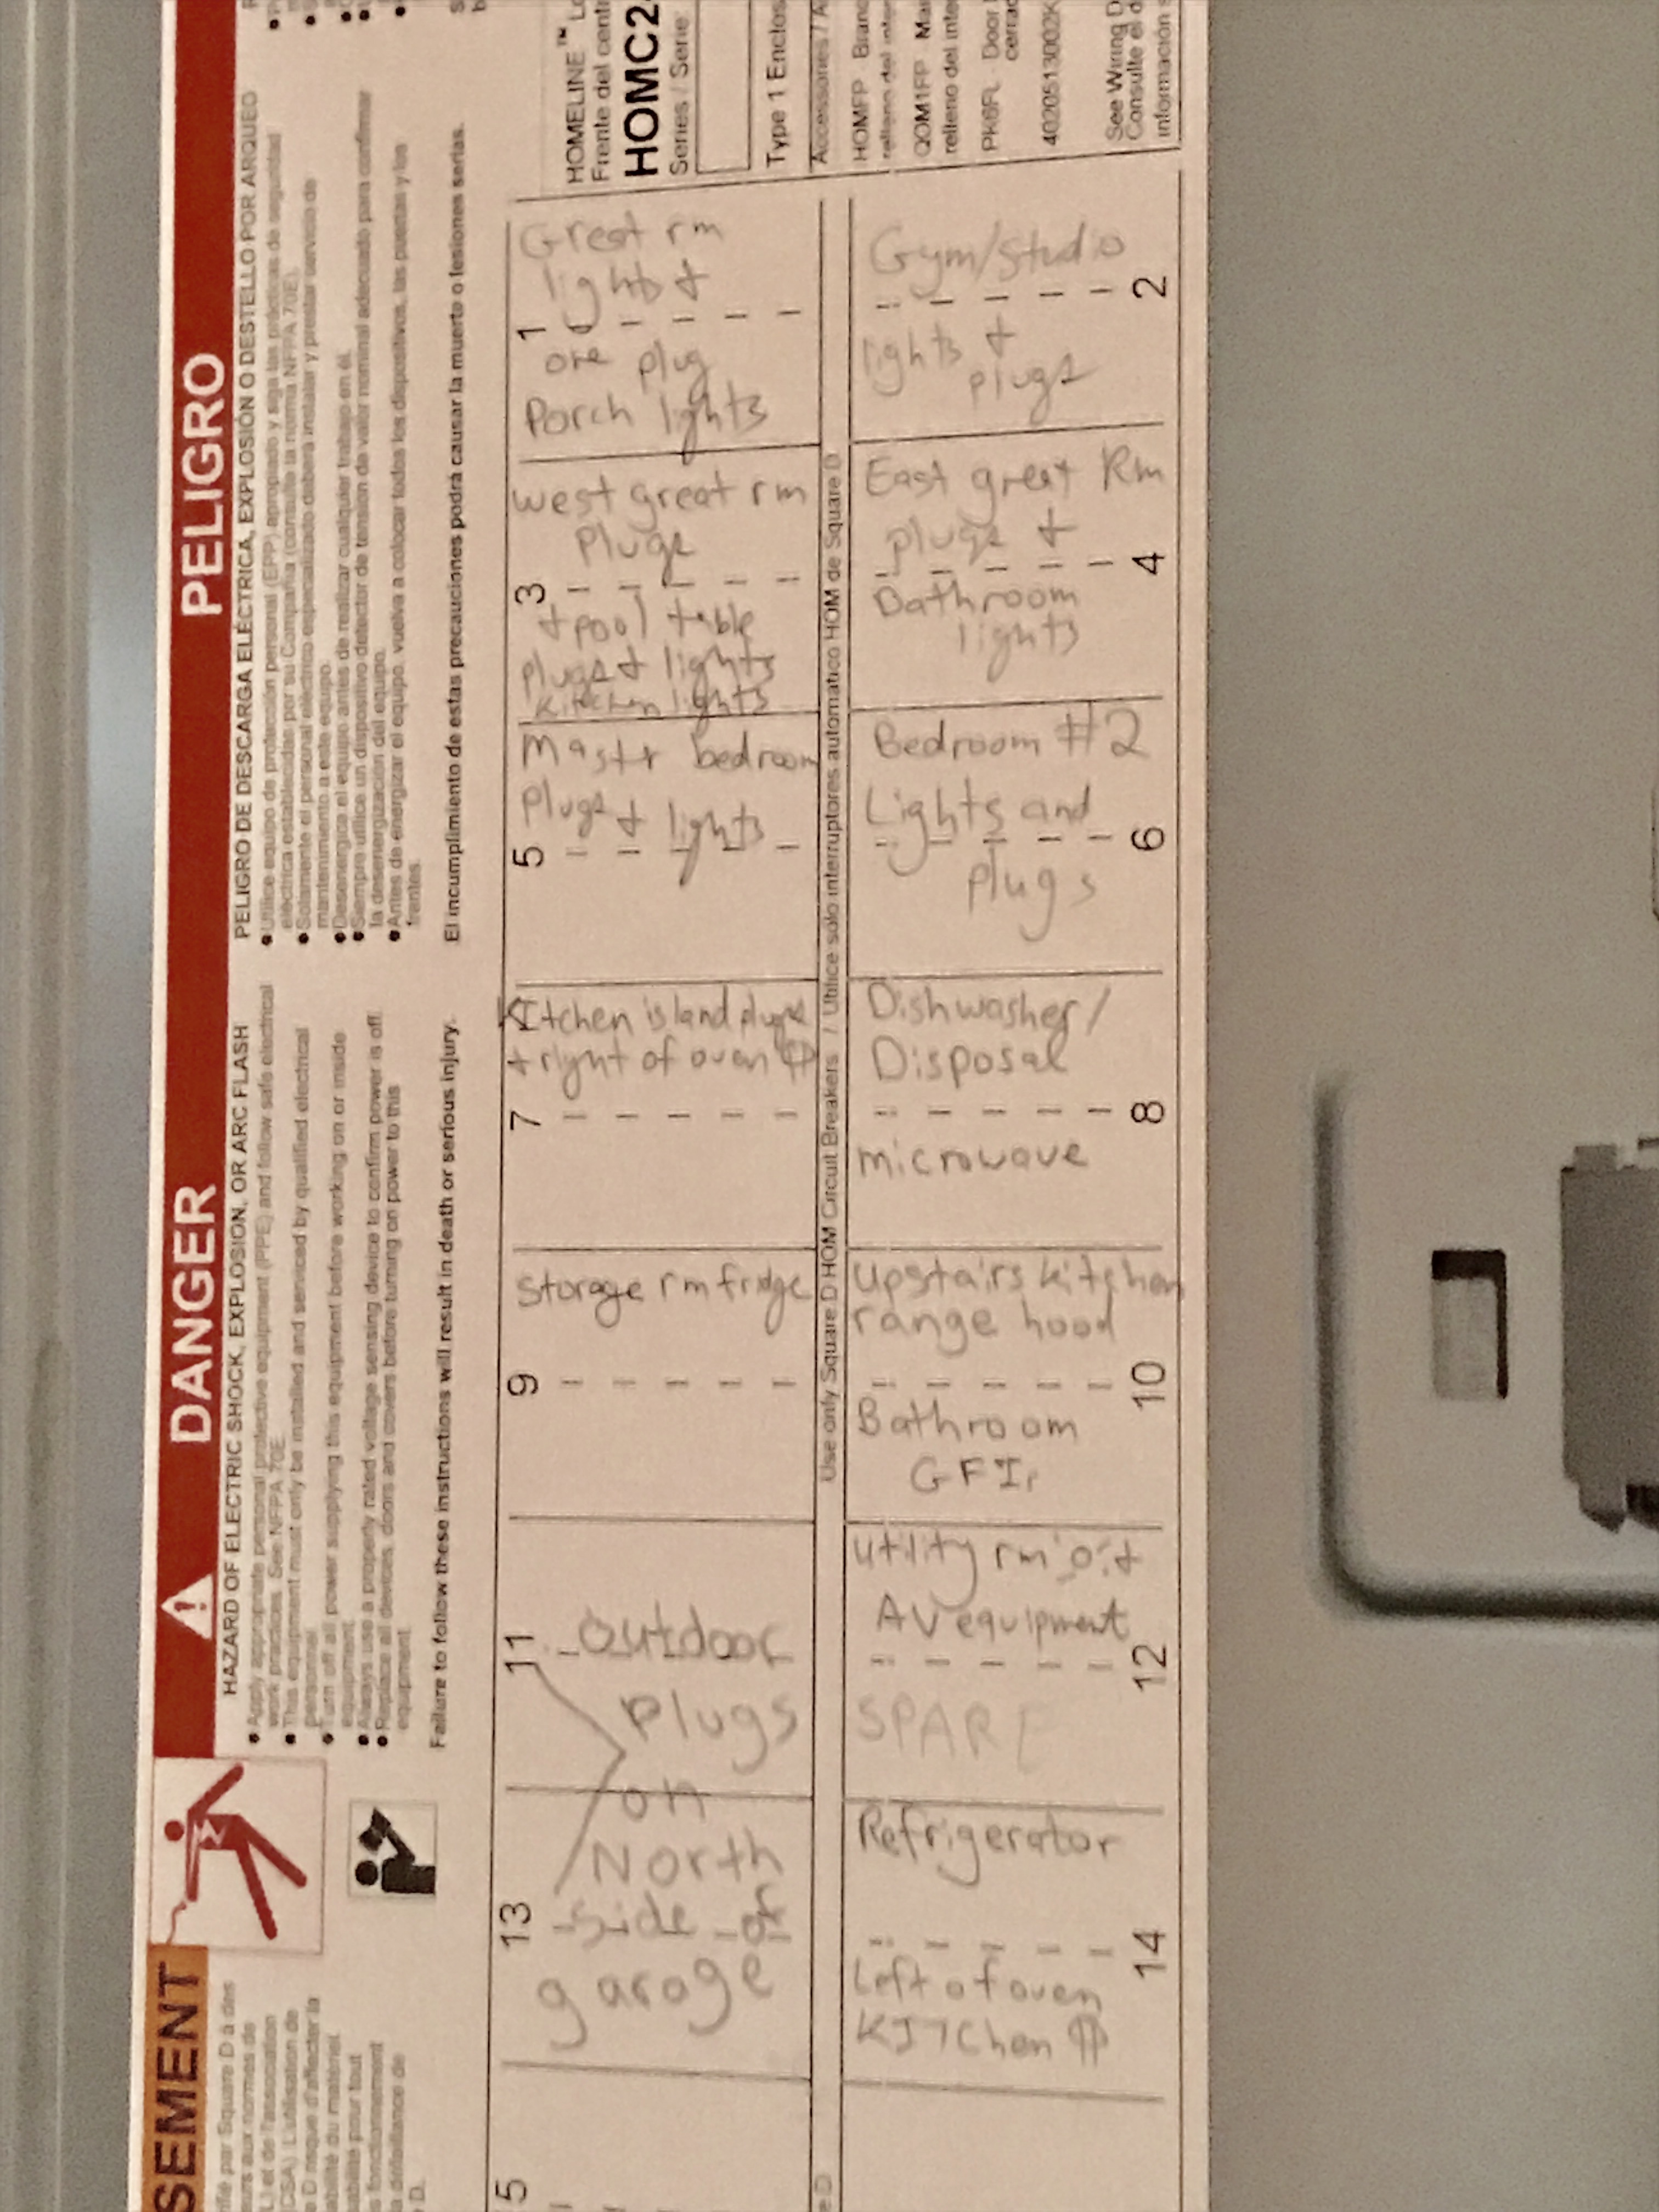 SEMENT
DANGER
PELIGRO
HAZARD OF ELECTRIC SHOCK, EXPLOSION, OR ARC FLASH
● Apply appropriate personal protective equipment (PPE) and follow safe electrical
work practices. See NFPA 70E.
● This equipment must only be installed and serviced by qualified electrical
personnel.
● Turn off all power supplying this equipment before working on or inside
equipment.
● Always use a properly rated voltage sensing device to confirm power is off.
● Replace all devices, doors and covers before turning on power to this
equipment.
Failure to follow these instructions will result in death or serious injury.
PELIGRO DE DESCARGA ELÉCTRICA, EXPLOSIÓN O DESTELLO POR ARQUEO
● Utilice equipo de protección personal (EPP) apropiado y siga las prácticas de seguridad
eléctrica establecidas por su Compañía (consulte la norma NFPA 70E).
● Solamente el personal eléctrico especializado deberá instalar y prestar servicio de
mantenimiento a este equipo.
● Desenergice el equipo antes de realizar cualquier trabajo en él.
● Siempre utilice un dispositivo detector de tensión de valor nominal adecuado para confirmar
la desenergización del equipo.
● Antes de energizar el equipo, vuelva a colocar todos los dispositivos, las puertas y los
frentes.
El incumplimiento de estas precauciones podrá causar la muerte o lesiones serias.
HOMELINE™
Frente del centr
HOMC2
Series / Serie:
Type 1 Enclos
Accessories / A
HOMFP Branc
relleno del inter
QOM1FP Mai
relleno del inte
PK6FL Door
cerrad
4020513002K
See Wiring D
Consulte el d
información s
1
Great rm
lights +
one plug
Porch lights
2
Gym/studio
lights +
plugs
3
West great rm
Plugs
+ pool table
plugs + lights
Kitchen lights
4
East great Rm
plugs +
Bathroom
lights
5
Mastr bedroom
Plugs + lights
6
Bedroom #2
Lights and
plugs
7
Kitchen island plugs
+ right of oven
8
Dishwasher/
Disposal
microwave
9
Storage rm fridge
10
Upstairs kitchen
range hood
Bathroom
GFI
11
13
Outdoor
Plugs
on
North
side of
garage
12
utility rm
AV equipment
SPARE
14
Refrigerator
Left of oven
KITChen
5
Use only Square D HOM Circuit Breakers. / Utilice sólo interruptores automático HOM de Square D